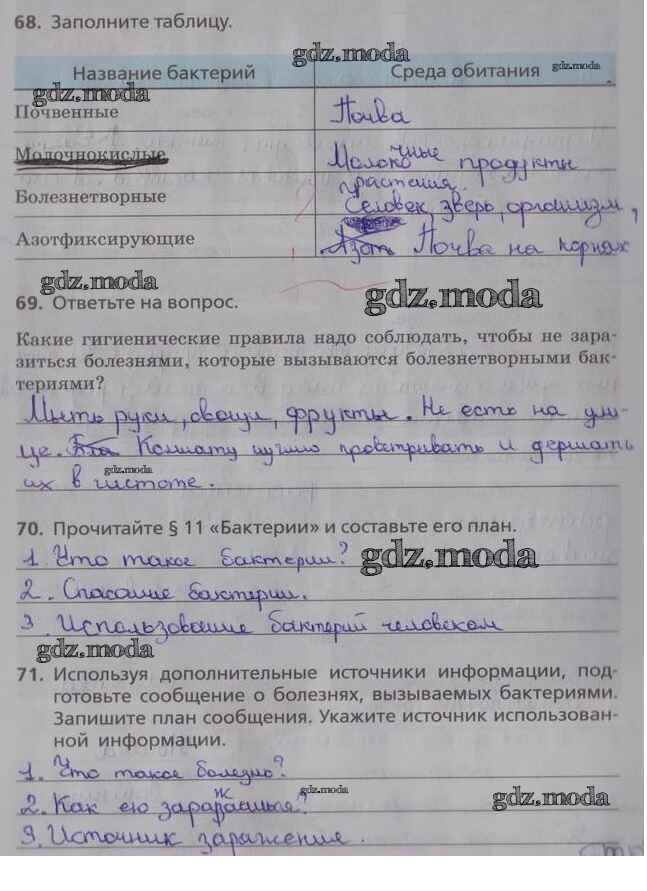 68. Заполните таблицу.
gdz.moda
Название бактерий Среда обитания gdz.moda
gdz.moda
Почвенные Почва
Молочнокислые Молочные продукты
растения.
Болезнетворные Человек, зверь, организм,
Азотфиксирующие Азот Почва на корнях
gdz.moda
gdz.moda
69. Ответьте на вопрос.
Какие гигиенические правила надо соблюдать, чтобы не зара-
зиться болезнями, которые вызываются болезнетворными бак-
териями?
Мыть руки, овощи, фрукты. Не есть на ули-
це. Комнату нужно проветривать и держать
gdz.moda
их в чистоте.
70. Прочитайте § 11 «Бактерии» и составьте его план.
1. Что такое бактерии? gdz.moda
2. Спасание бактерии.
3. Использование бактерий человеком
gdz.moda
71. Используя дополнительные источники информации, под-
готовьте сообщение о болезнях, вызываемых бактериями.
Запишите план сообщения. Укажите источник использован-
ной информации.
1. Что такое болезнь?
gdz.moda
2. Как ею
gdz.moda
3. Источник заражения.